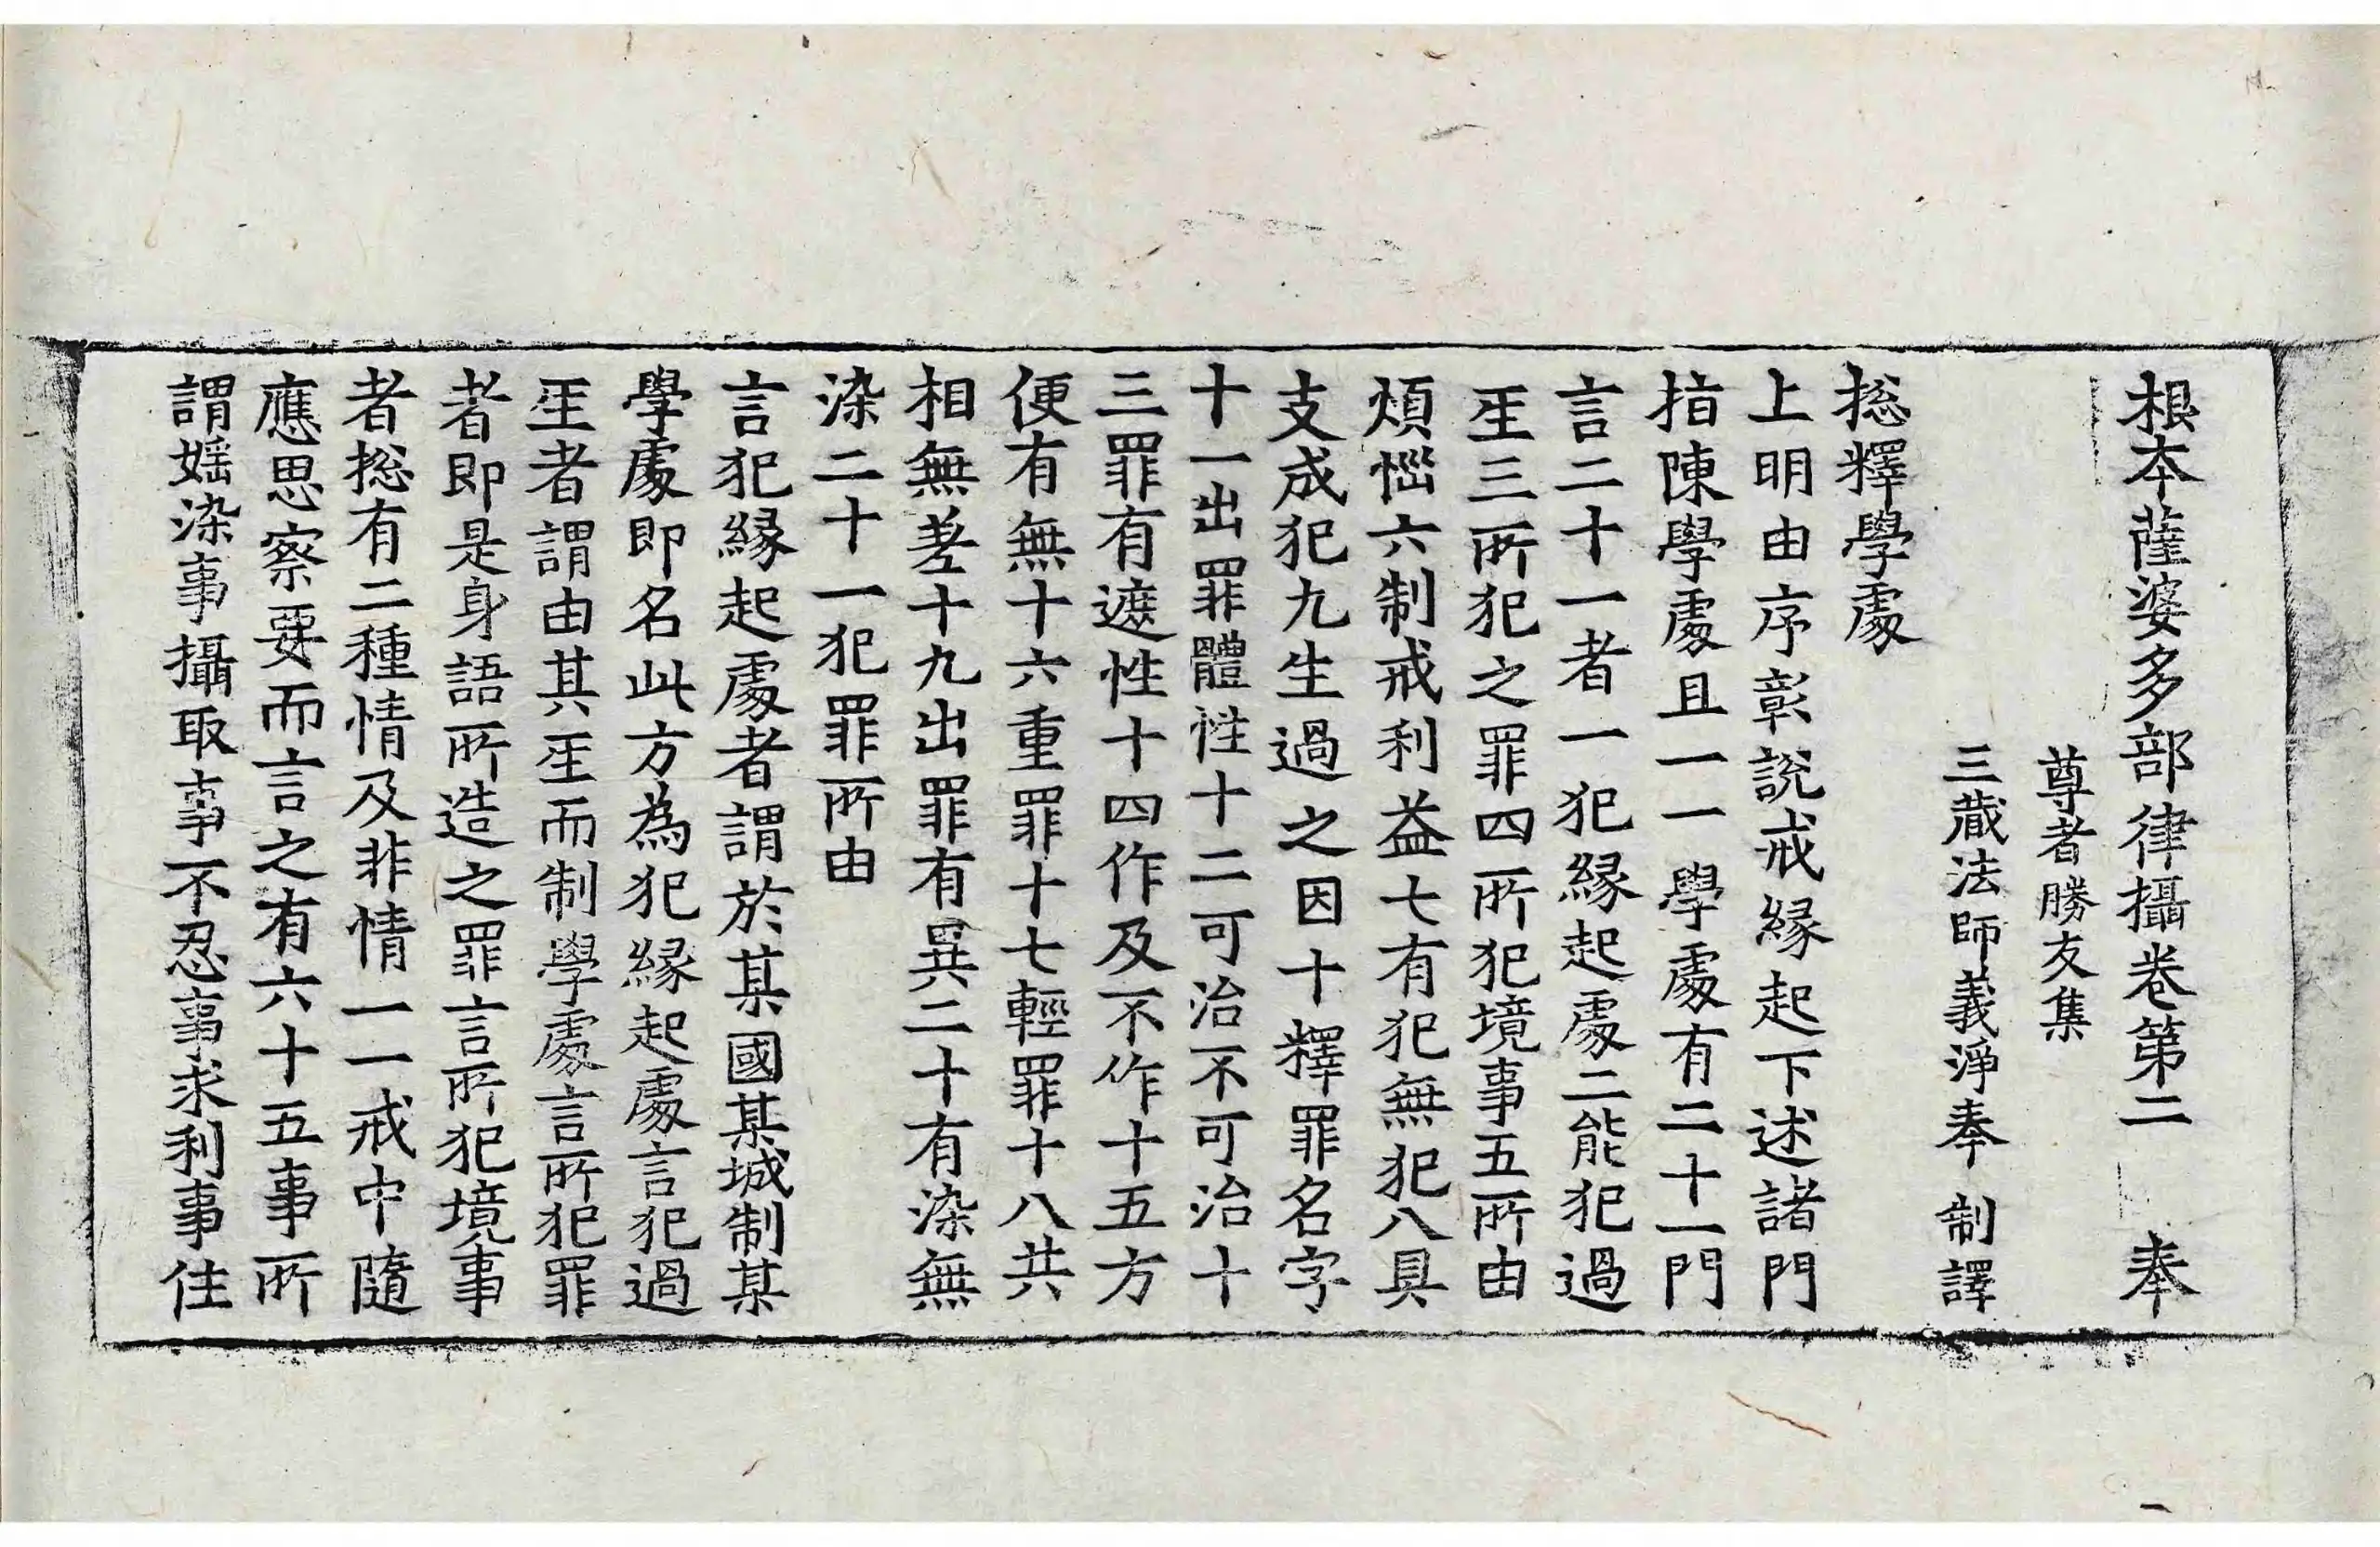 根本薩婆多部律攝卷第二 奉
尊者勝友集
三藏法師義淨奉 制譯
揔釋學處
上明由序彰說戒緣起下述諸門
指陳學處且一一學處有二十一門
言二十一者一犯緣起處二能犯過
𤯔三所犯之罪四所犯境事五所由
煩惱六制戒利益七有犯無犯八具
支成犯九生過之因十釋罪名字
十一出罪體性十二可治不可治十
三罪有遮性十四作及不作十五方
便有無十六重罪十七輕罪十八共
相無差十九出罪有異二十有染無
染二十一犯罪所由
言犯緣起處者謂於某國某城制某
學處即名此方為犯緣起處言犯過
𤯔者謂由其𤯔而制學處言所犯罪
者即是身語所造之罪言所犯境事
者揔有二種情及非情一一戒中隨
應思察要而言之有六十五事所
謂婬染事攝取事不忍事求利事住